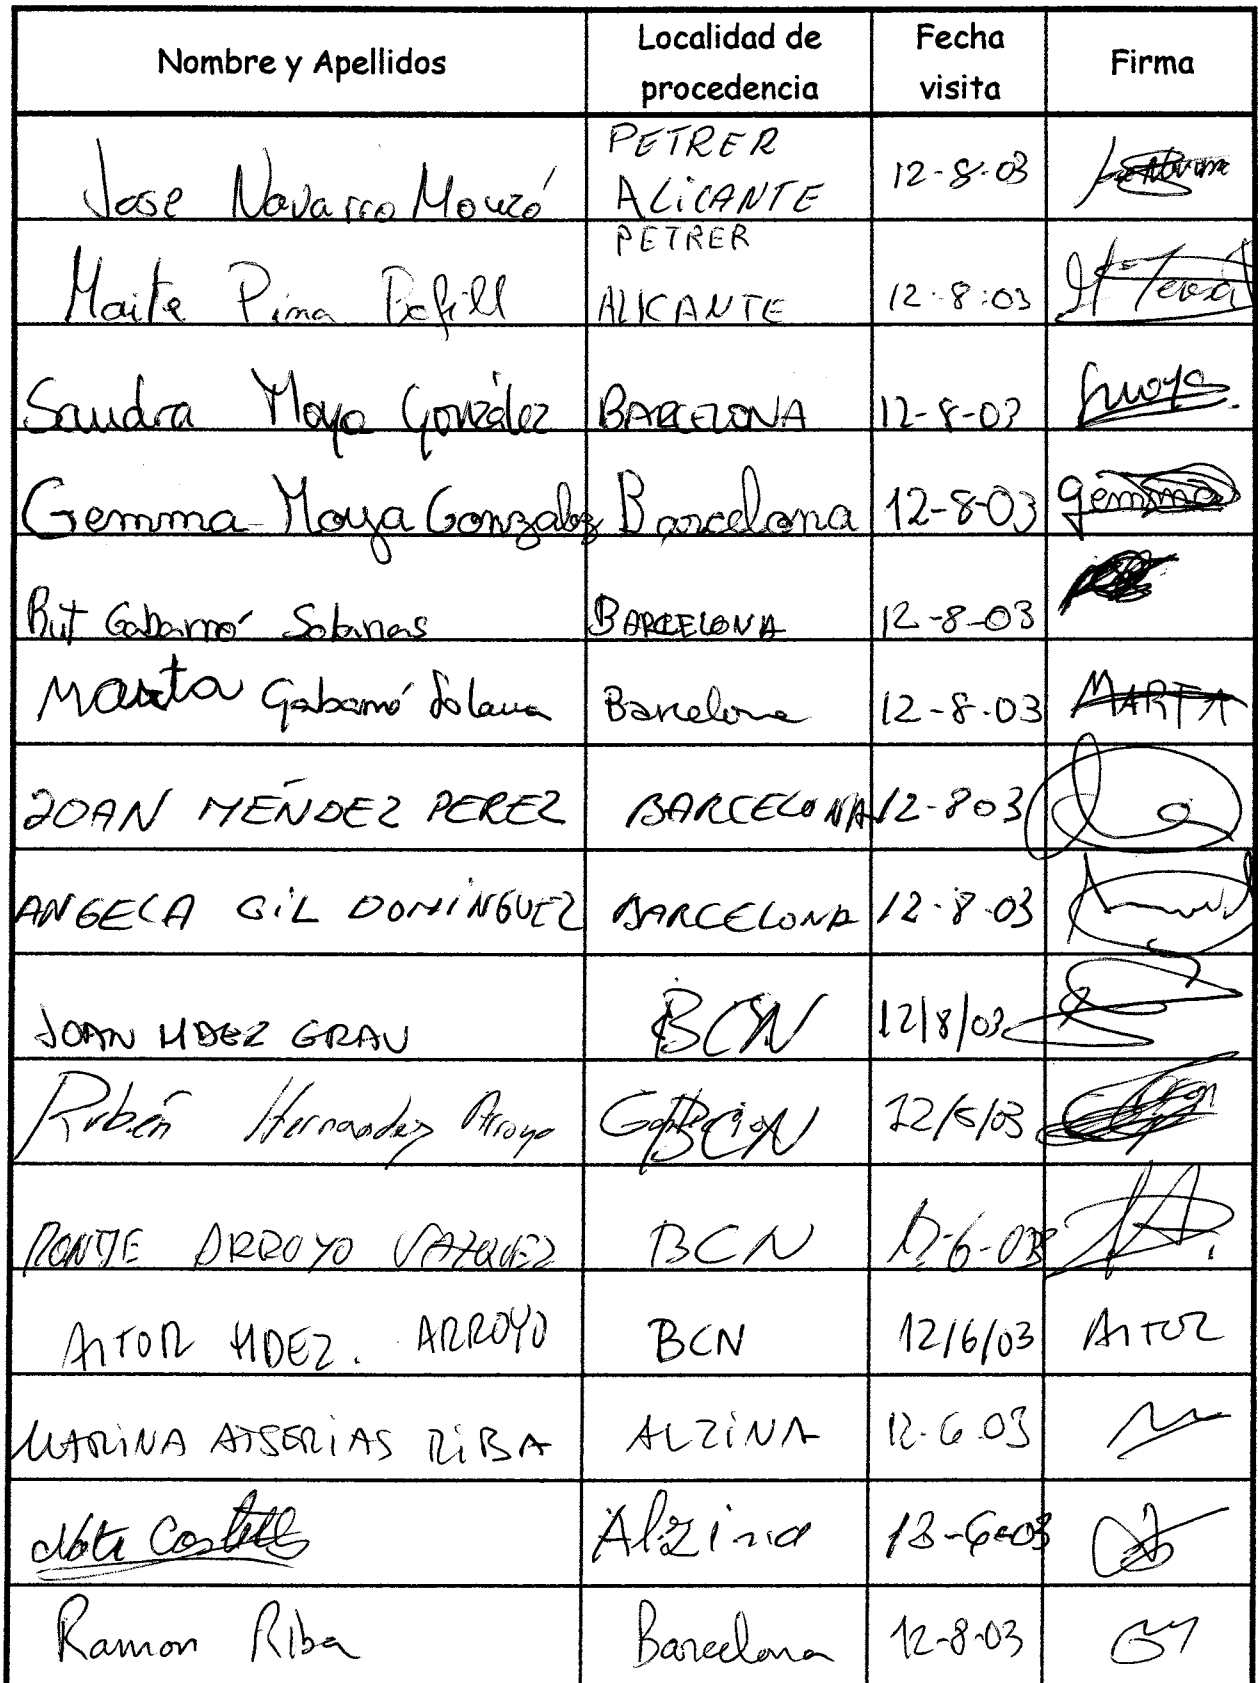 Nombre y Apellidos Localidad de procedencia Fecha visita Firma
Jose Navarro Monzó PETRER ALICANTE 12-8-03
Maite Pina Bofill PETRER ALICANTE 12-8-03
Sandra Moya González BARCELONA 12-8-03 Smoya
Gemma Moya Gonzalez Barcelona 12-8-03 gemma
Rut Gabarró Solanas BARCELONA 12-8-03
Marta Gabarró Solana Barcelona 12-8-03 MARTA
JOAN MÉNDEZ PEREZ BARCELONA 12-8 03
ANGELA GIL DOMÍNGUEZ BARCELONA 12-8-03
JOAN MDEZ GRAU BCN 12/8/03
Rubén Hernandez Arroyo BCN 12/6/03
MONTSE ARROYO VAZQUEZ BCN 12-6-03
AITOR HDEZ. ARROYO BCN 12/6/03 AITOR
MARINA ATSERIAS RIBA ALZINA 12-6-03
Costells Alzina 13-6-03
Ramon Riba Barcelona 12-8-03